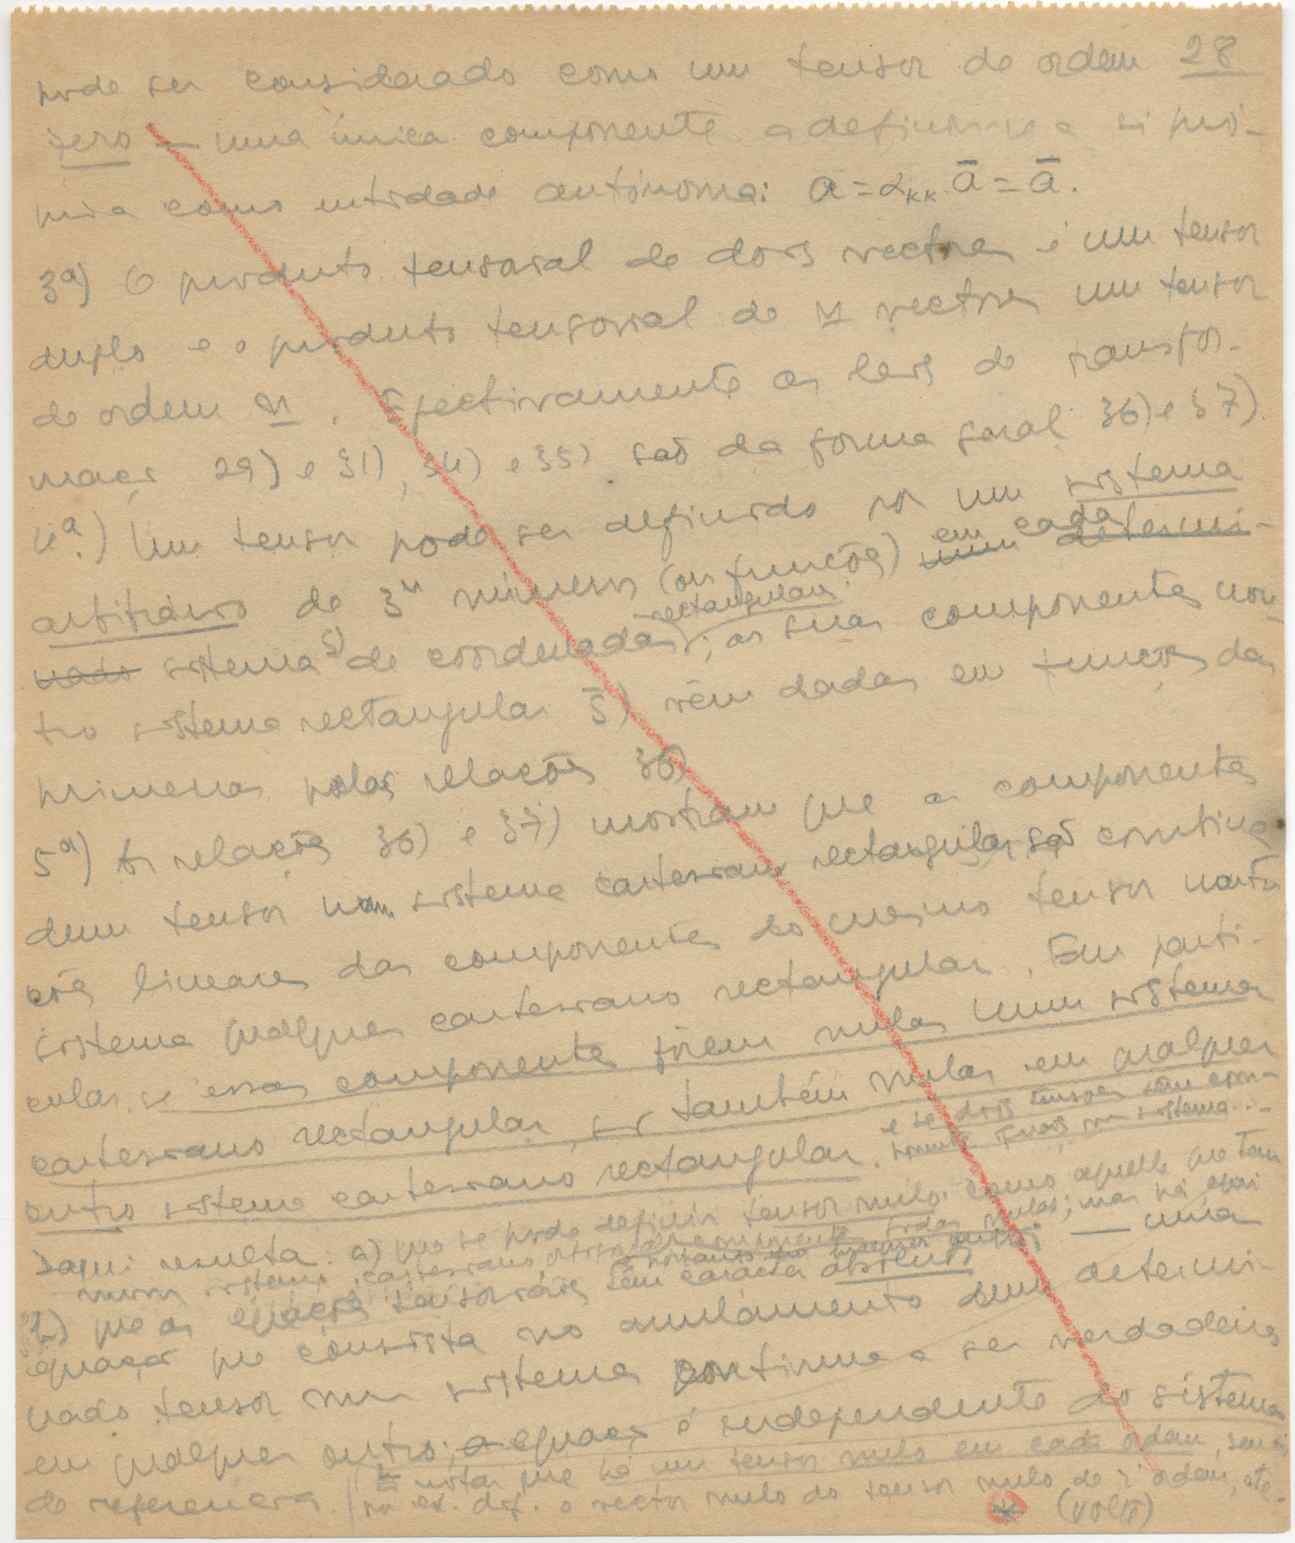 pode ser considerado como um tensor de ordem 28
zero — uma única componente a definir-se a si pró-
pria como entidade autónoma: a = α_KK ā = ā.
3ª) O produto tensorial de dois vectores é um tensor
duplo e o produto tensorial de n vectores um tensor
de ordem n. Efectivamente as leis de transfor-
mação 29) e 31), 34) e 35) são da forma geral 36) e 37).
4ª) Um tensor pode ser definido por um sistema
arbitrário de 3ⁿ números (ou funções) num determi- em cada
nado sistema S) de coordenadas rectangulares; as suas componentes nou-
tro sistema rectangular S̄) vêm dadas em função das
primeiras pelas relações 36)
5ª) As relações 36) e 37) mostram que as componentes
dum tensor num sistema cartesiano rectangular são combina-
ções lineares das componentes do mesmo tensor noutro
sistema qualquer cartesiano rectangular. Em parti-
cular, se essas componentes forem nulas num sistema
cartesiano rectangular, são também nulas em qualquer
outro sistema cartesiano rectangular. e se dois tensores têm
iguais num sistema...
Daqui resulta: a) que se pode definir tensor nulo: como aquele que tem
num sistema cartesiano componentes todas nulas;
b) que as equações tensoriais têm carácter absoluto — uma
equação que consista no anulamento dum determi-
nado tensor num sistema continua a ser verdadeira
em qualquer outro; a equação é independente do sistema
de referência. notar que há um tensor nulo em cada ordem,
o vector nulo do tensor nulo de 2ª ordem, etc.
* (volta)